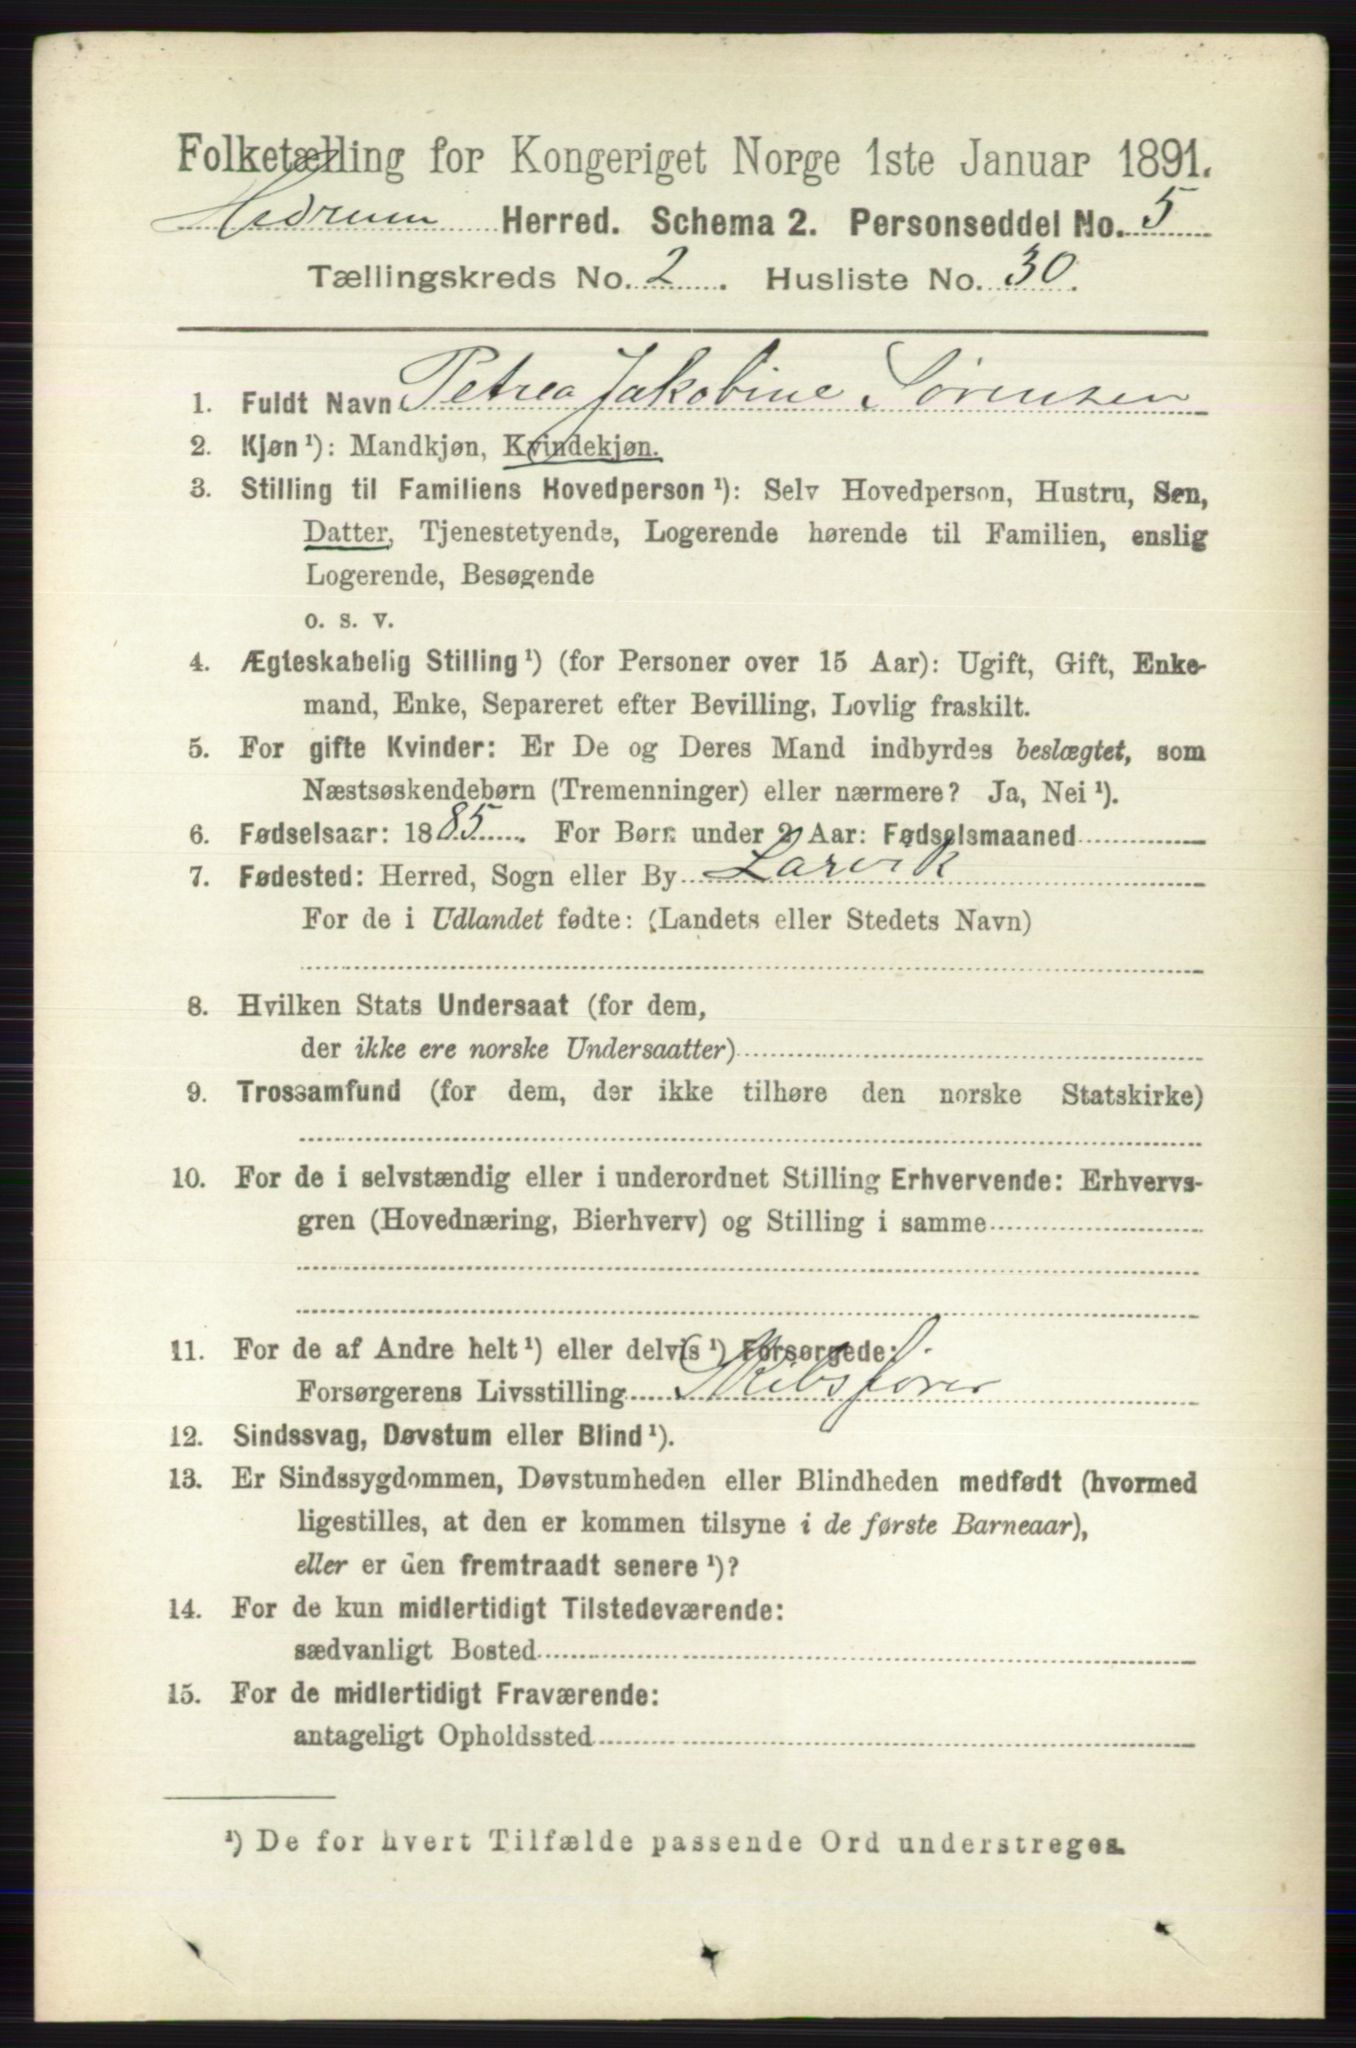 Folketælling for Kongeriget Norge 1ste Januar 1891.
Hedrum Herred. Schema 2. Personseddel No. 5
Tællingskreds No. 2. Husliste No. 30.
1. Fuldt Navn Petrea Jakobine Sørensen
2. Kjøn¹): Mandkjøn, Kvindekjøn.
3. Stilling til Familiens Hovedperson¹): Selv Hovedperson, Hustru, Søn,
Datter, Tjenestetyende, Logerende hørende til Familien, enslig
Logerende, Besøgende
o. s. v.
4. Ægteskabelig Stilling¹) (for Personer over 15 Aar): Ugift, Gift, Enke-
mand, Enke, Separeret efter Bevilling, Lovlig fraskilt.
5. For gifte Kvinder: Er De og Deres Mand indbyrdes beslægtet, som
Næstsøskendebørn (Tremenninger) eller nærmere? Ja, Nei¹).
6. Fødselsaar: 1885. For Børn under 2 Aar: Fødselsmaaned
7. Fødested: Herred, Sogn eller By Larvik
For de i Udlandet fødte: (Landets eller Stedets Navn)
8. Hvilken Stats Undersaat (for dem,
der ikke ere norske Undersaatter)
9. Trossamfund (for dem, der ikke tilhøre den norske Statskirke)
10. For de i selvstændig eller i underordnet Stilling Erhvervende: Erhvervs-
gren (Hovednæring, Bierhverv) og Stilling i samme
11. For de af Andre helt¹) eller delvis¹) Forsørgede:
Forsørgerens Livsstilling Skibsfører
12. Sindssvag, Døvstum eller Blind¹).
13. Er Sindssygdommen, Døvstumheden eller Blindheden medfødt (hvormed
ligestilles, at den er kommen tilsyne i de første Barneaar),
eller er den fremtraadt senere¹)?
14. For de kun midlertidigt Tilstedeværende:
sædvanligt Bosted
15. For de midlertidigt Fraværende:
antageligt Opholdssted
¹) De for hvert Tilfælde passende Ord understreges.